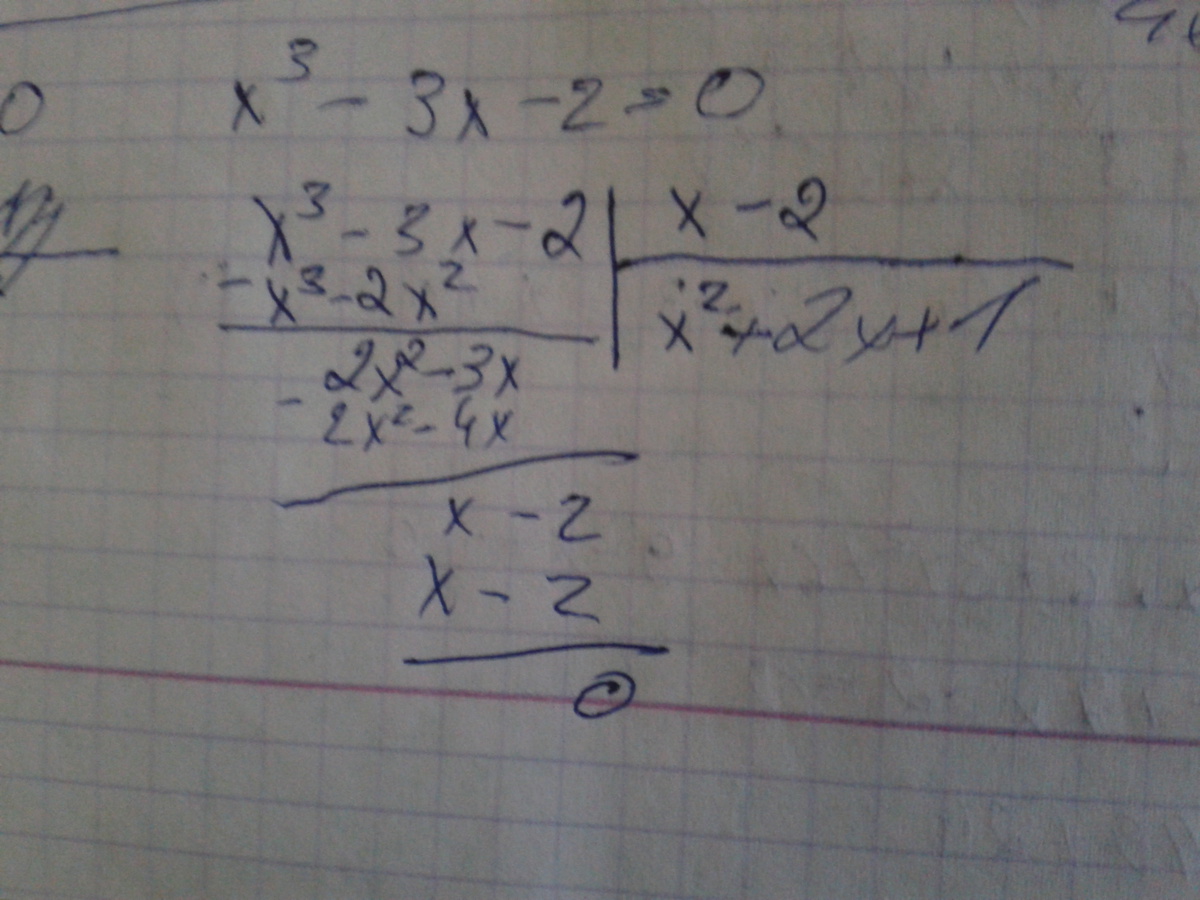 0 x³ - 3x - 2 = 0
x³ - 3x - 2 | x - 2
- x³ - 2x² | x² + 2x + 1
- 2x² - 3x
2x² - 4x
x - 2
x - 2
0